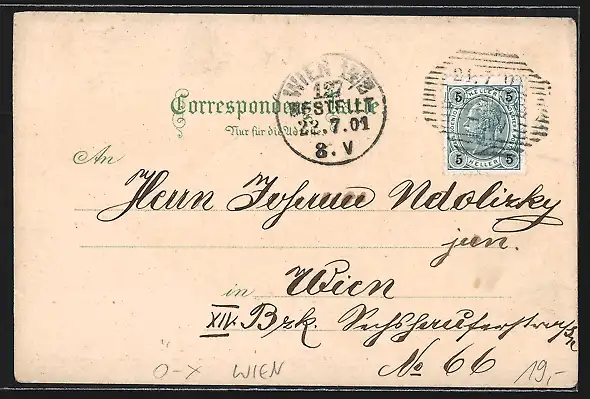 Correspondenz-Karte
Nur für die Adresse
WIEN
127
BESTELLT
22.7.01
8. V
21 7 01
5 HELLER 5
5 HELLER 5
An
Herrn Johann Udolizky
jun.
in Wien
XIV. Bzk. Sechshauserstrasse
No 66
Ö-X WIEN
19,-